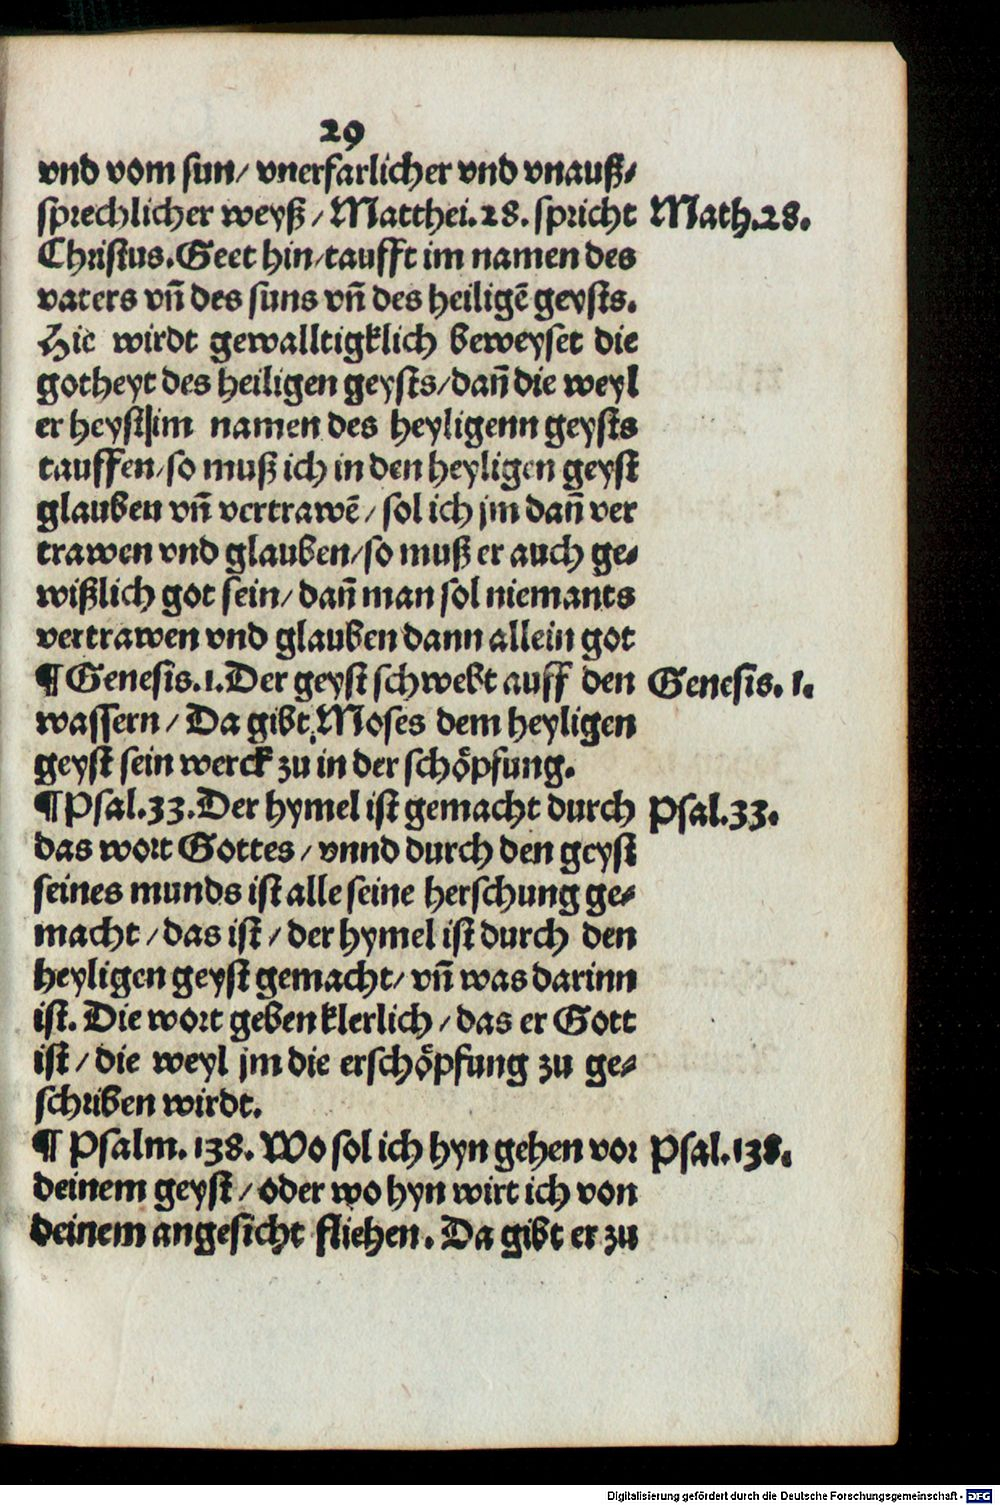 29
vnd vom sun/ vnerfarlicher vnd vnauß⸗
sprechlicher weyß / Matthei.28. spricht Math.28.
Christus. Geet hin/taufft im namen des
vaters vñ des suns vñ des heiligē geysts.
Hie wirdt gewalltigklich beweyset die
gotheyt des heiligen geysts/dañ die weyl
er heyst im namen des heyligenn geysts
tauffen/so muß ich in den heyligen geyst
glauben vñ vertrawē / sol ich jm dañ ver
trawen vnd glauben/so muß er auch ge⸗
wißlich got sein/ dañ man sol niemants
vertrawen vnd glauben dann allein got
¶ Genesis.1.Der geyst schwebt auff den Genesis. 1.
wassern / Da gibt Moses dem heyligen
geyst sein werck zu in der schöpfung.
¶ Psal.33.Der hymel ist gemacht durch Psal.33.
das wort Gottes / vnnd durch den geyst
seines munds ist alle seine herschung ge⸗
macht / das ist / der hymel ist durch den
heyligen geyst gemacht/ vñ was darinn
ist. Die wort geben klerlich / das er Gott
ist / die weyl jm die erschöpfung zu ge⸗
schriben wirdt.
¶ Psalm. 138. Wo sol ich hyn gehen vor Psal.138.
deinem geyst / oder wo hyn wirt ich von
deinem angesicht fliehen. Da gibt er zu
Digitalisierung gefördert durch die Deutsche Forschungsgemeinschaft - DFG